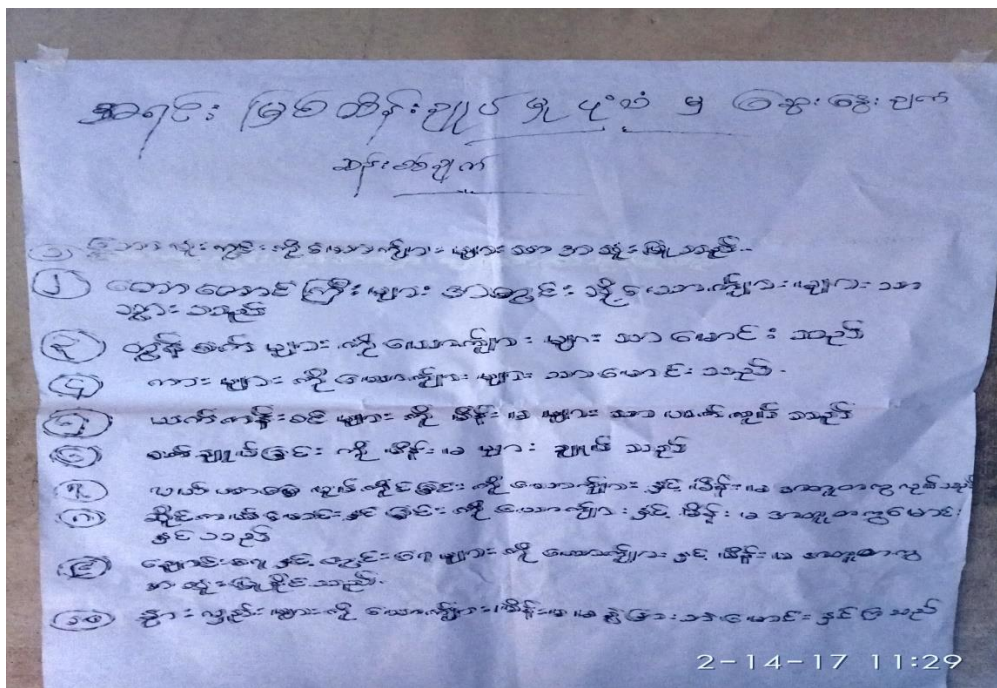 အရင်း မြစ်ထိန်းချုပ်မှု ပုံသဏ် မှ ဆွေးနွေးချက်
ဆန်းစစ်ချက်
၁ ယောက်ျား များ သာ အသုံးပြုသည်။
၂ တောတောင်ကြီးများ အတွင်း သို့ ယောက်ျားများ သာ
သွားသည်
၃ ထွန်စက် များ ကို ယောက်ျား များ သာ မောင်းသည်
၄ ကား များ ကို ယောက်ျား များ သာ မောင်းသည်။
၅ ယက်ကန်းစင် များ ကို မိန်းမ များ သာ ယက်လုပ် သည်
၆ စက်ချုပ်ခြင်း ကို မိန်းမ များ ချုပ် သည်
၇ လယ်ယာမြေ လုပ်ကိုင်ခြင်း ကို ယောက်ျား နှင့် မိန်းမ အတူတကွ လုပ်သည်
၈ ဆိုင်ကယ်မောင်းနှင်ခြင်း ကို ယောက်ျား နှင့် မိန်းမ အတူတကွမောင်း
နှင်သည်
၉ ချောင်းရေ နှင့် တွင်းရေ များ ကို ယောက်ျား နှင့် မိန်းမ အတူတကွ
အသုံးပြုနိုင်သည်။
၁၀ နွားလှည်း များ ကို ယောက်ျား မိန်းမ မခွဲခြား မောင်းနှင်ကြသည်
2-14-17 11:29